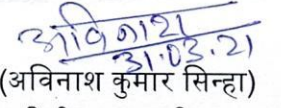 अविनाश
31.03.21
(अविनाश कुमार सिन्हा)